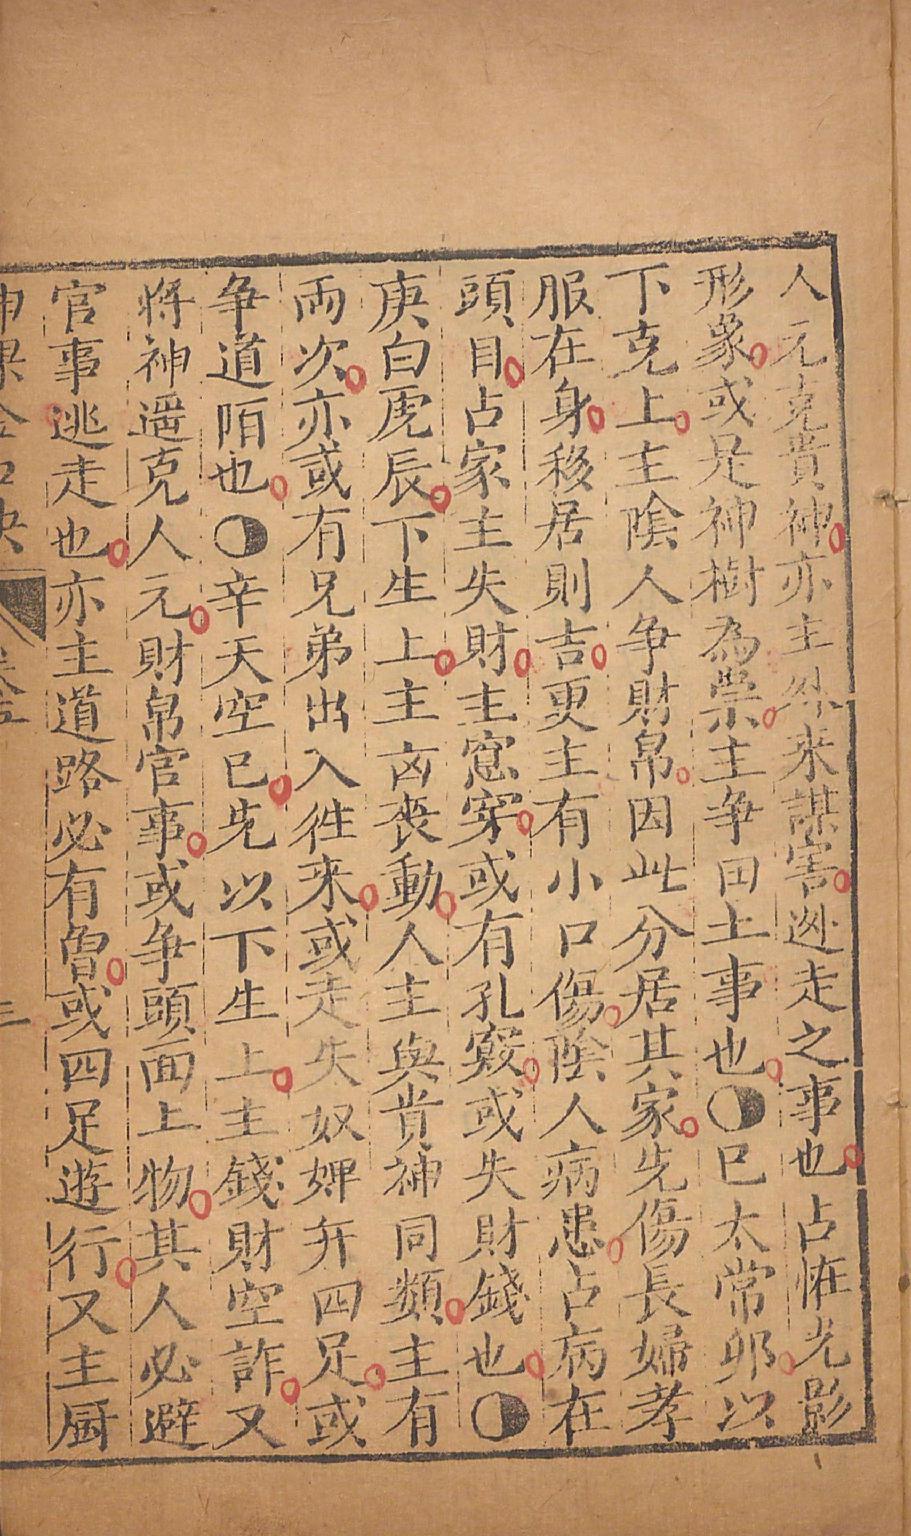 人元克貴神亦主外來謀害逃走之事也占恠光影
形象或是神樹為祟主争田土事也巳太常卯以
下克上主陰人争財帛因此分居其家先傷長婦孝
服在身移居則吉更主有小口傷陰人病患占病在
頭目占家主失財主窓穿或有孔竅或失財錢也
庚白虎辰下生上主凶喪動人主與貴神同類主有
兩次亦或有兄弟出入徃來或走失奴婢并四足或
争道陌也辛天空巳先以下生上主錢財空詐又
將神遥克人元財帛官事或争頭面上物其人必避
官事逃走也亦主道路必有魯或四足遊行又主厨
神課金口訣 卷五 三